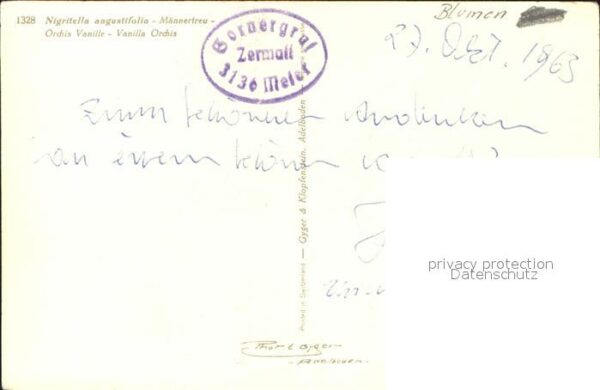 Blumen
1328 Nigritella angustifolia - Männertreu -
Orchis Vanille - Vanilla Orchis
Gornergrat
Zermatt
3136 Meter
27. Okt. 1963
Zum schönen Andenken
an einen schönen
Printed in Switzerland — Gyger & Klopfenstein, Adelboden
privacy protection
Datenschutz
Photo Gyger
Adelboden